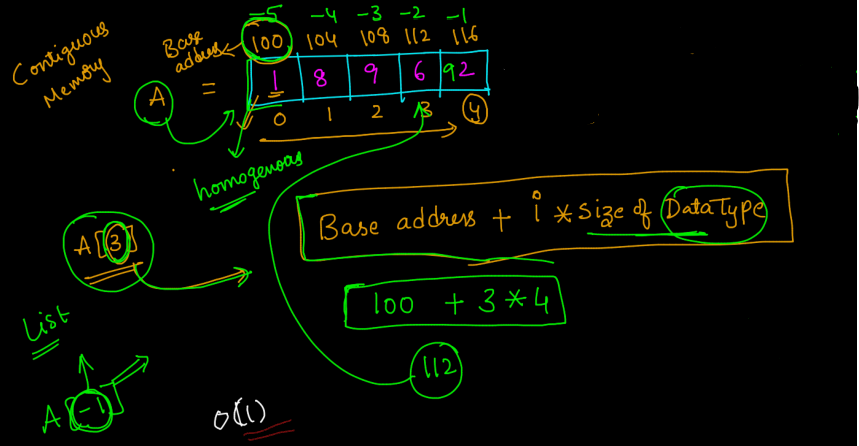 -5 -4 -3 -2 -1
Contiguous
Memory
Base
address
100 104 108 112 116
A = 1 8 9 6 92
0 1 2 3 4
homogenous
Base address + i * size of DataType
A[3]
100 + 3 * 4
List
112
A[-1]
O(1)